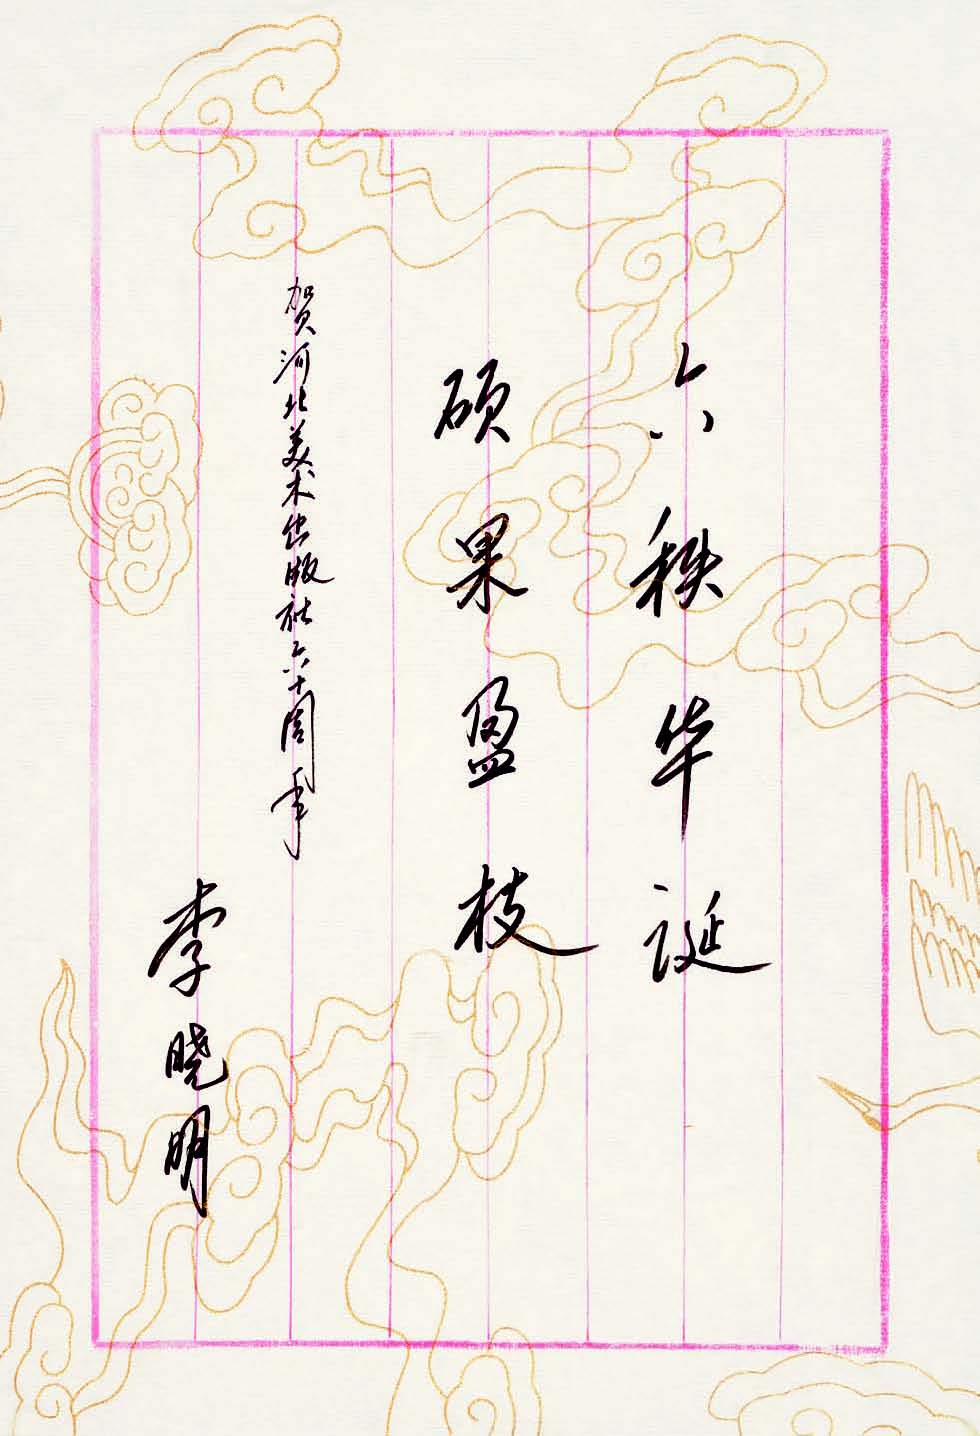 六秩华诞
硕果盈枝
贺河北美术出版社六十周年
李晓明